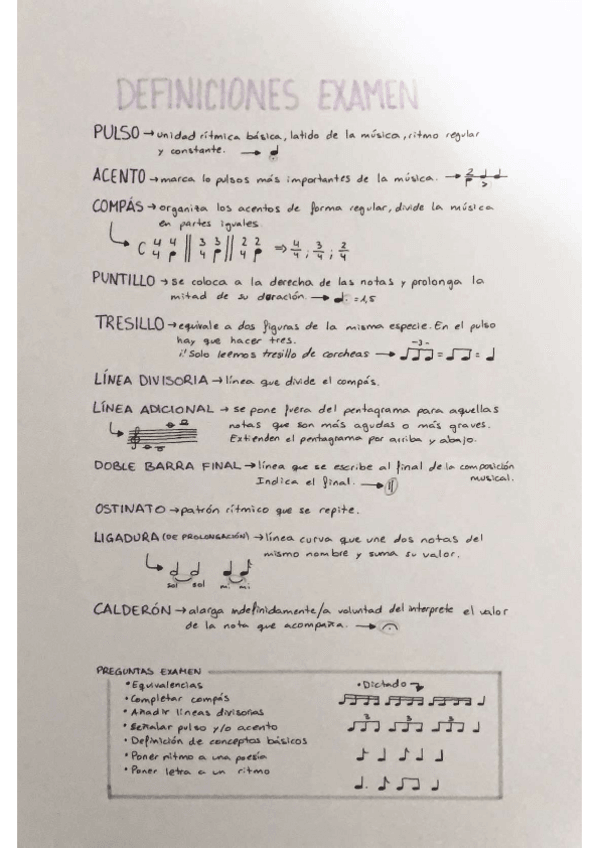 DEFINICIONES EXAMEN
PULSO → unidad rítmica básica, latido de la música, ritmo regular
y constante. → ♩
ACENTO → marca lo pulsos más importantes de la música. → 2
COMPÁS → organiza los acentos de forma regular, divide la música
en partes iguales.
C 4 4 || 3 3 || 2 2 ⇒ 4/4 ; 3/4 ; 2/4
4 4 4
PUNTILLO → se coloca a la derecha de las notas y prolonga la
mitad de su duración. → ♩. = 1,5
TRESILLO → equivale a dos figuras de la misma especie. En el pulso
hay que hacer tres.
¡! Solo leemos tresillo de corcheas → -3- ♫♪ = ♫ = ♩
LÍNEA DIVISORIA → línea que divide el compás.
LÍNEA ADICIONAL → se pone fuera del pentagrama para aquellas
notas que son más agudas o más graves.
Extienden el pentagrama por arriba y abajo.
DOBLE BARRA FINAL → línea que se escribe al final de la composición
musical.
Indica el final. →
OSTINATO → patrón rítmico que se repite.
LIGADURA (DE PROLONGACIÓN) → línea curva que une dos notas del
mismo nombre y suma su valor.
sol sol mi mi
CALDERÓN → alarga indefinidamente/a voluntad del interprete el valor
de la nota que acompaña. →
PREGUNTAS EXAMEN
• Equivalencias
• Completar compás
• Añadir líneas divisorias
• Señalar pulso y/o acento
• Definición de conceptos básicos
• Poner ritmo a una poesía
• Poner letra a un ritmo
• Dictado
3 3 3